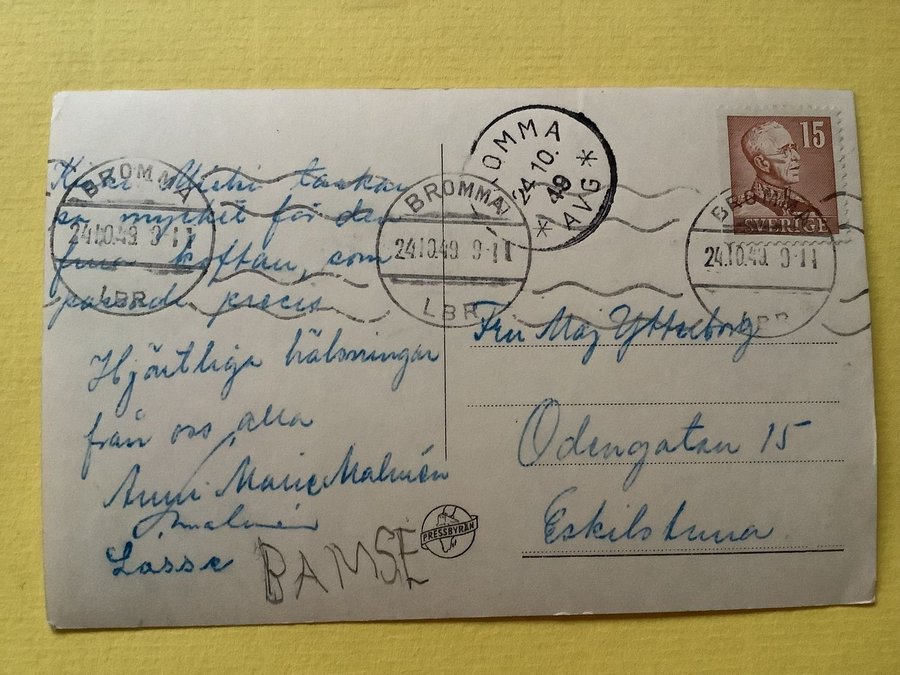 Kära
tackar
så mycket för den
fina koftan, som
passade precis
Hjärtliga hälsningar
från oss alla
Anni Marie Malmén
Lasse BAMSE
BROMMA
24.10.49 9-11
LBR
BROMMA
24.10.49 9-11
LBR
BROMMA
24.10.49
* AVG *
BROMMA
24.10.49 9-11
LBR
15
SVERIGE
Fru Maj Ytterborg
Odengatan 15
Eskilstuna
PRESSBYRÅN